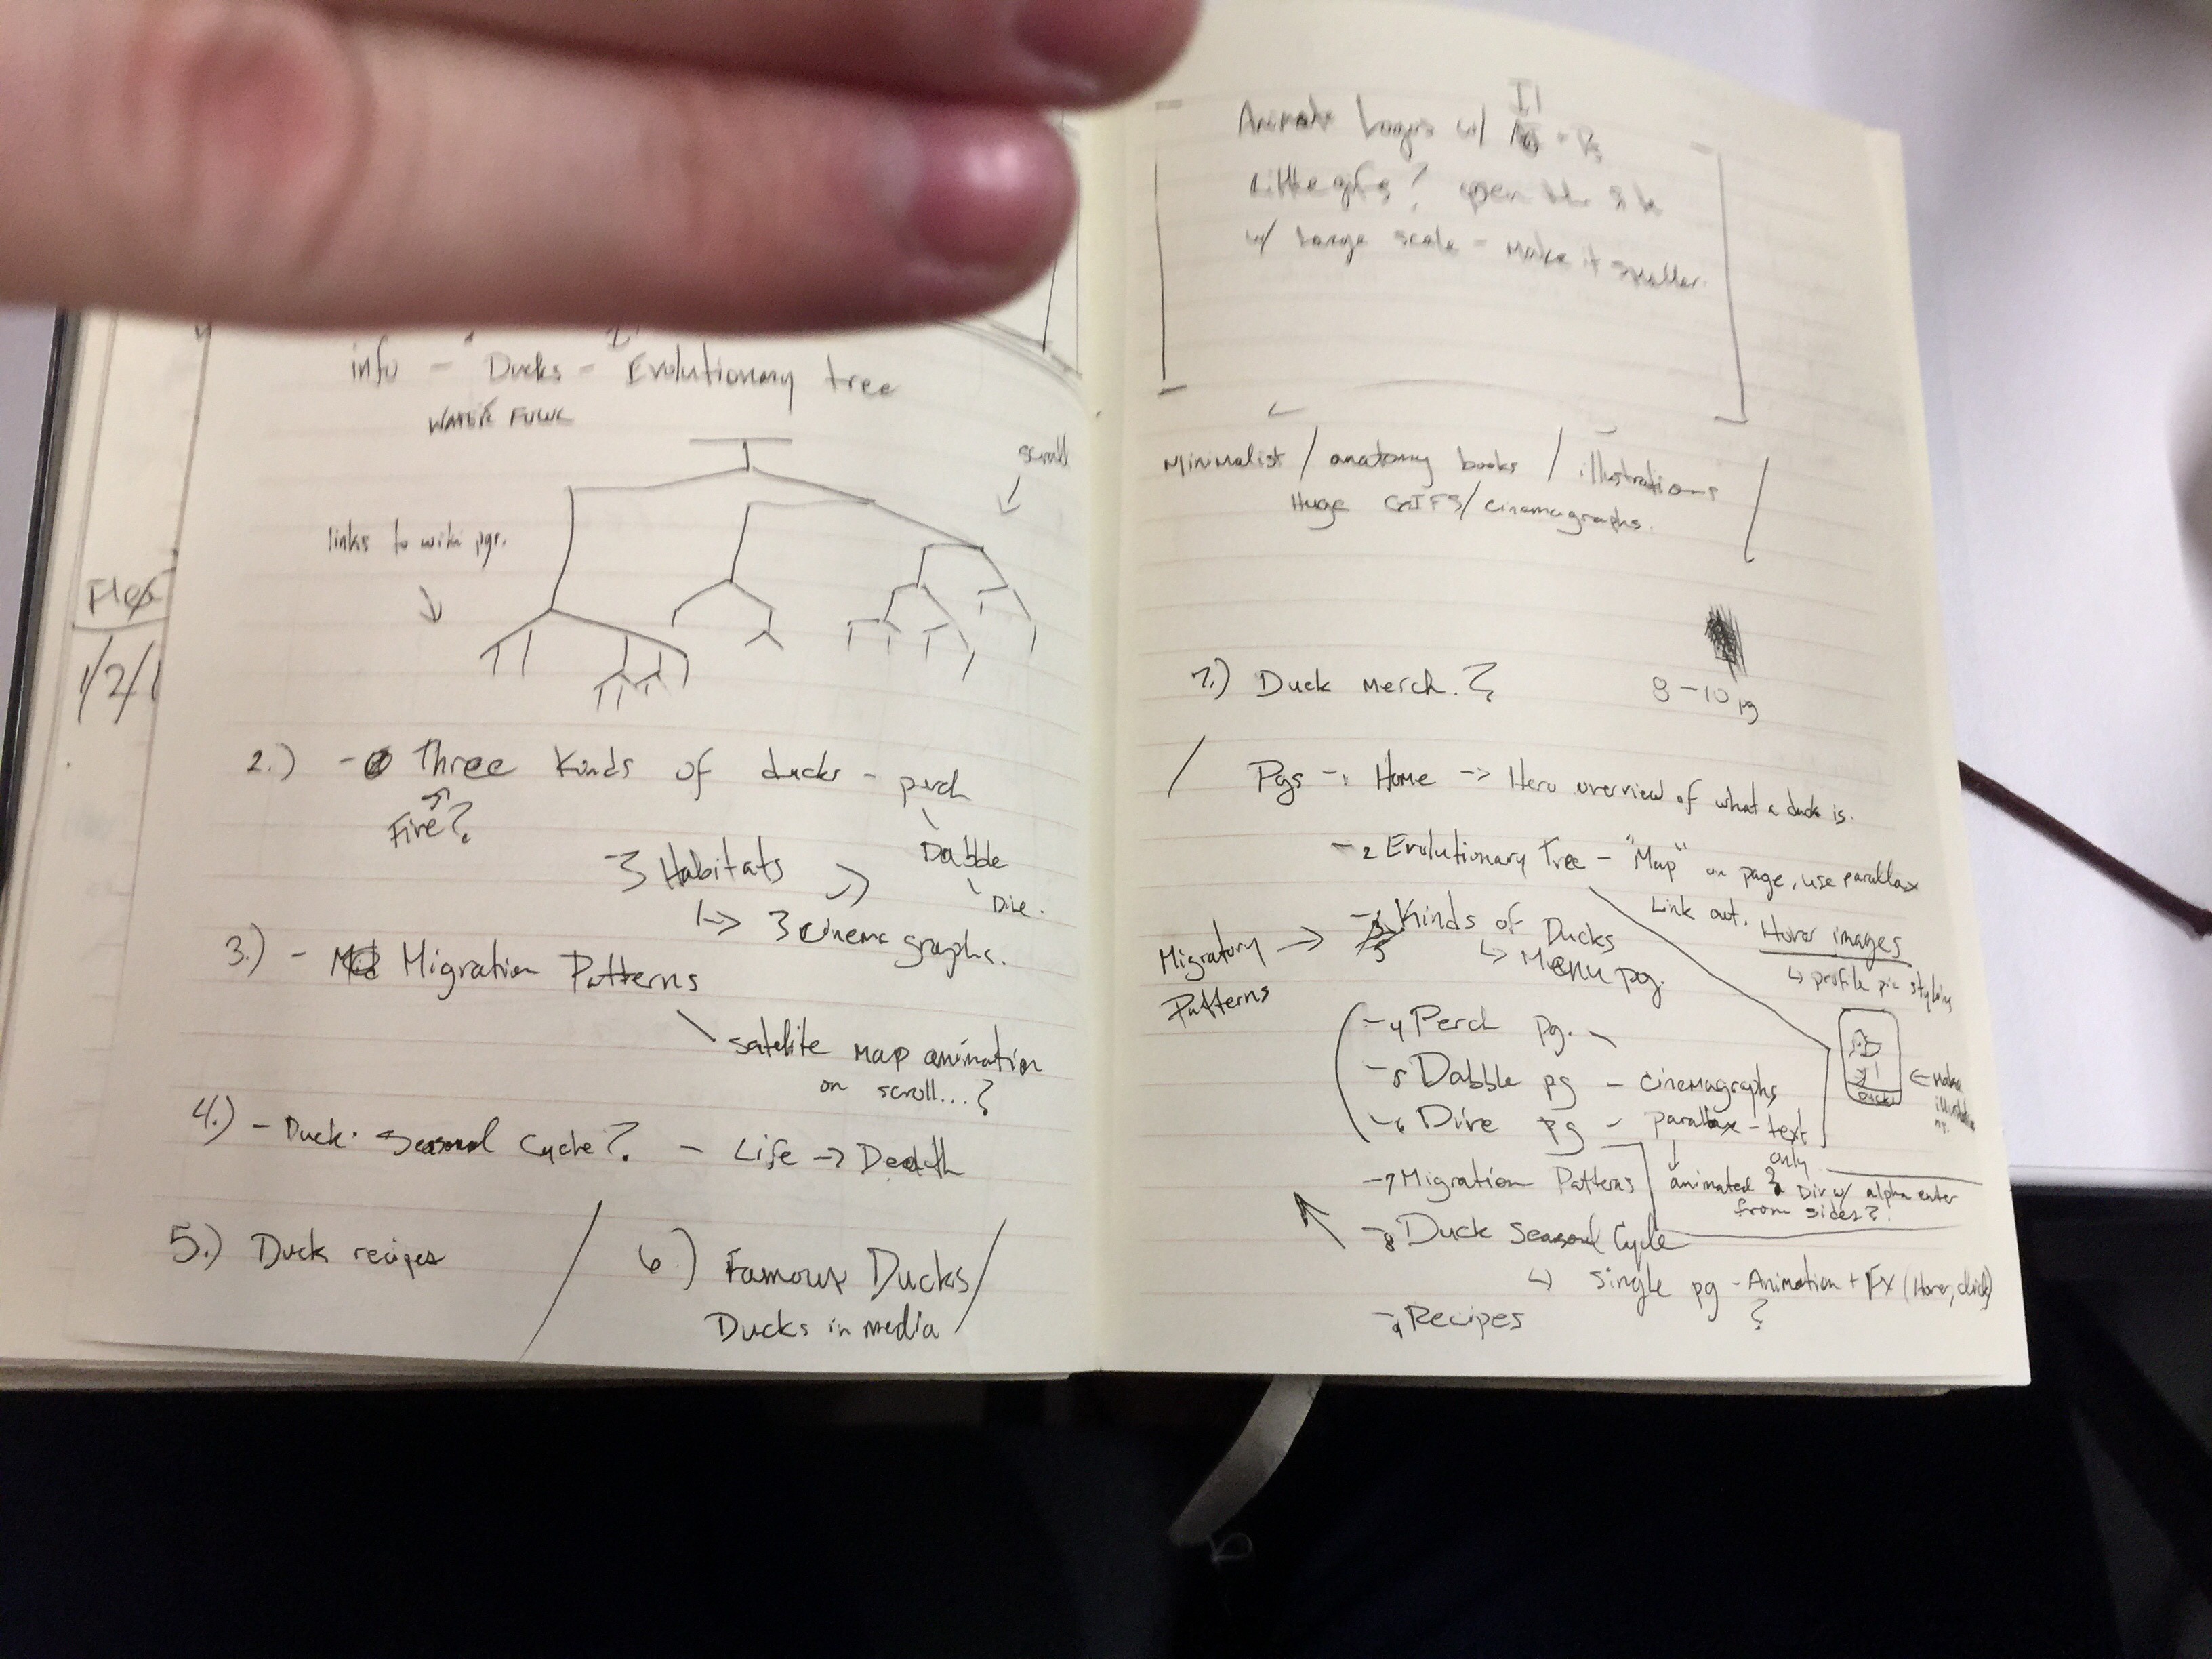 info - Ducks - Evolutionary tree
WATER FOWL
scroll
links to wiki pgs.
Flex
1/2/1
2.) - three kinds of ducks - perch
Five?
Dabble
Dive.
- 3 Habitats
↳ 3 cinemagraphs.
3.) - Migration Patterns
satelite map animation
on scroll...?
4.) - Duck Seasonal Cycle? - Life → Death
5.) Duck recipes
6.) Famous Ducks
Ducks in media
Animate
little gifs? open the site
w/ large scale = make it smaller.
Minimalist / anatomy books / illustrations
Huge GIFS/cinemagraphs.
7.) Duck merch.?
8-10 pg
Pgs -1 Home → Hero overview of what a duck is.
-2 Evolutionary Tree - "Map" on page, use parallax
Link out, Hover images
↳ profile pic styling
Migratory → -3 Kinds of Ducks
Patterns
↳ Menu pg.
-4 Perch pg.
-5 Dabble pg - cinemagraphs
-6 Dive pg - parallax - text
-7 Migration Patterns animated div w/ alpha enter
only from sides?
-8 Duck Seasonal Cycle
↳ single pg - Animation + FX (Hover, click)
?
-9 Recipes